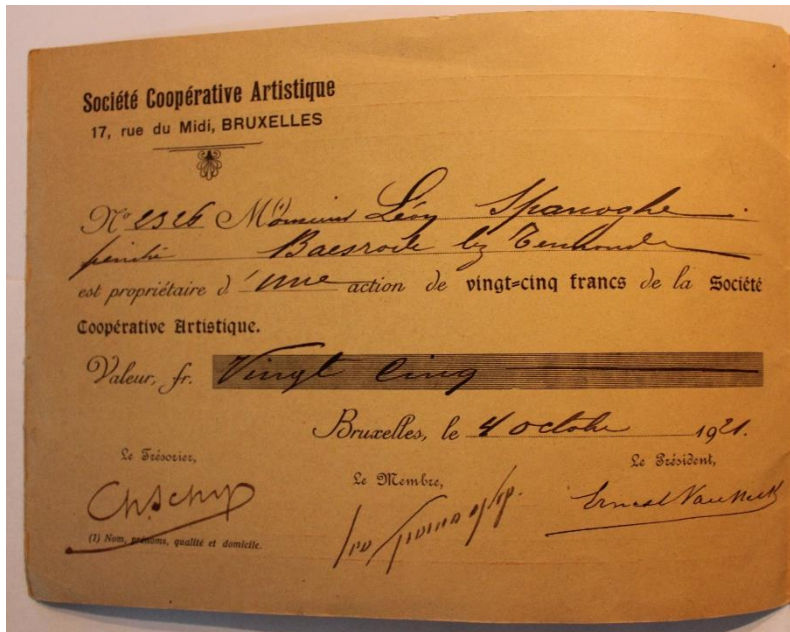 Société Coopérative Artistique
17, rue du Midi, BRUXELLES
No 2326 M(1)onsieur Léon Spanoghe.
peintre Baesrode lez Termonde
est propriétaire d'une action de vingt=cinq francs de la Société
Coopérative Artistique.
Valeur, fr. Vingt Cinq
Bruxelles, le 4 octobre 1921.
Le Trésorier,
Le Membre,
Le Président,
Ernest
(1) Nom, prénoms, qualité et domicile.